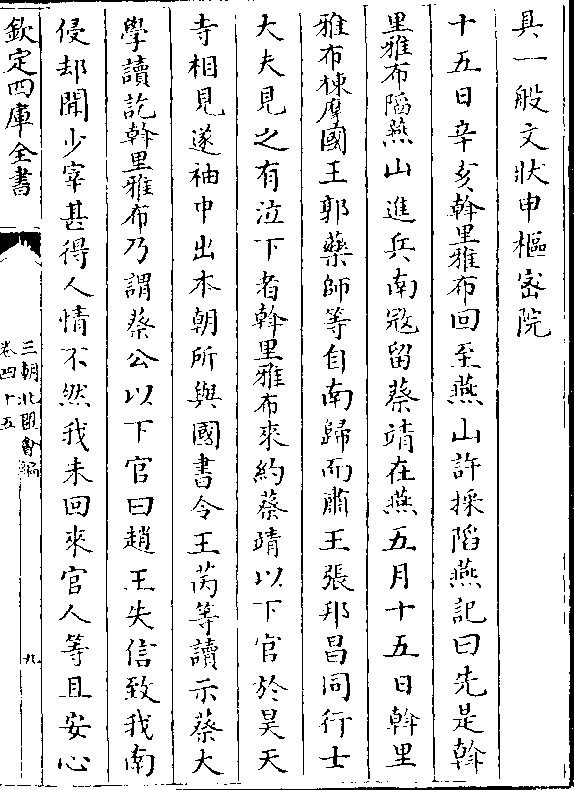 具一般文狀申樞密院
十五日辛亥斡里雅布回至燕山許採陷燕記曰先是斡
里雅布陷燕山進兵南㓂留蔡靖在燕五月十五日斡里
雅布棟摩國王郭藥師等自南歸而肅王張邦昌同行士
大夫見之有泣下者斡里雅布來約蔡靖以下官於昊天
寺相見遂袖中出本朝所與國書令王芮等讀示蔡大
學讀訖斡里雅布乃謂蔡公以下官曰趙王失信致我南
侵却聞少宰甚得人情不然我未回來官人等且安心
欽定四庫全書
三朝北盟會編
卷四十五
九